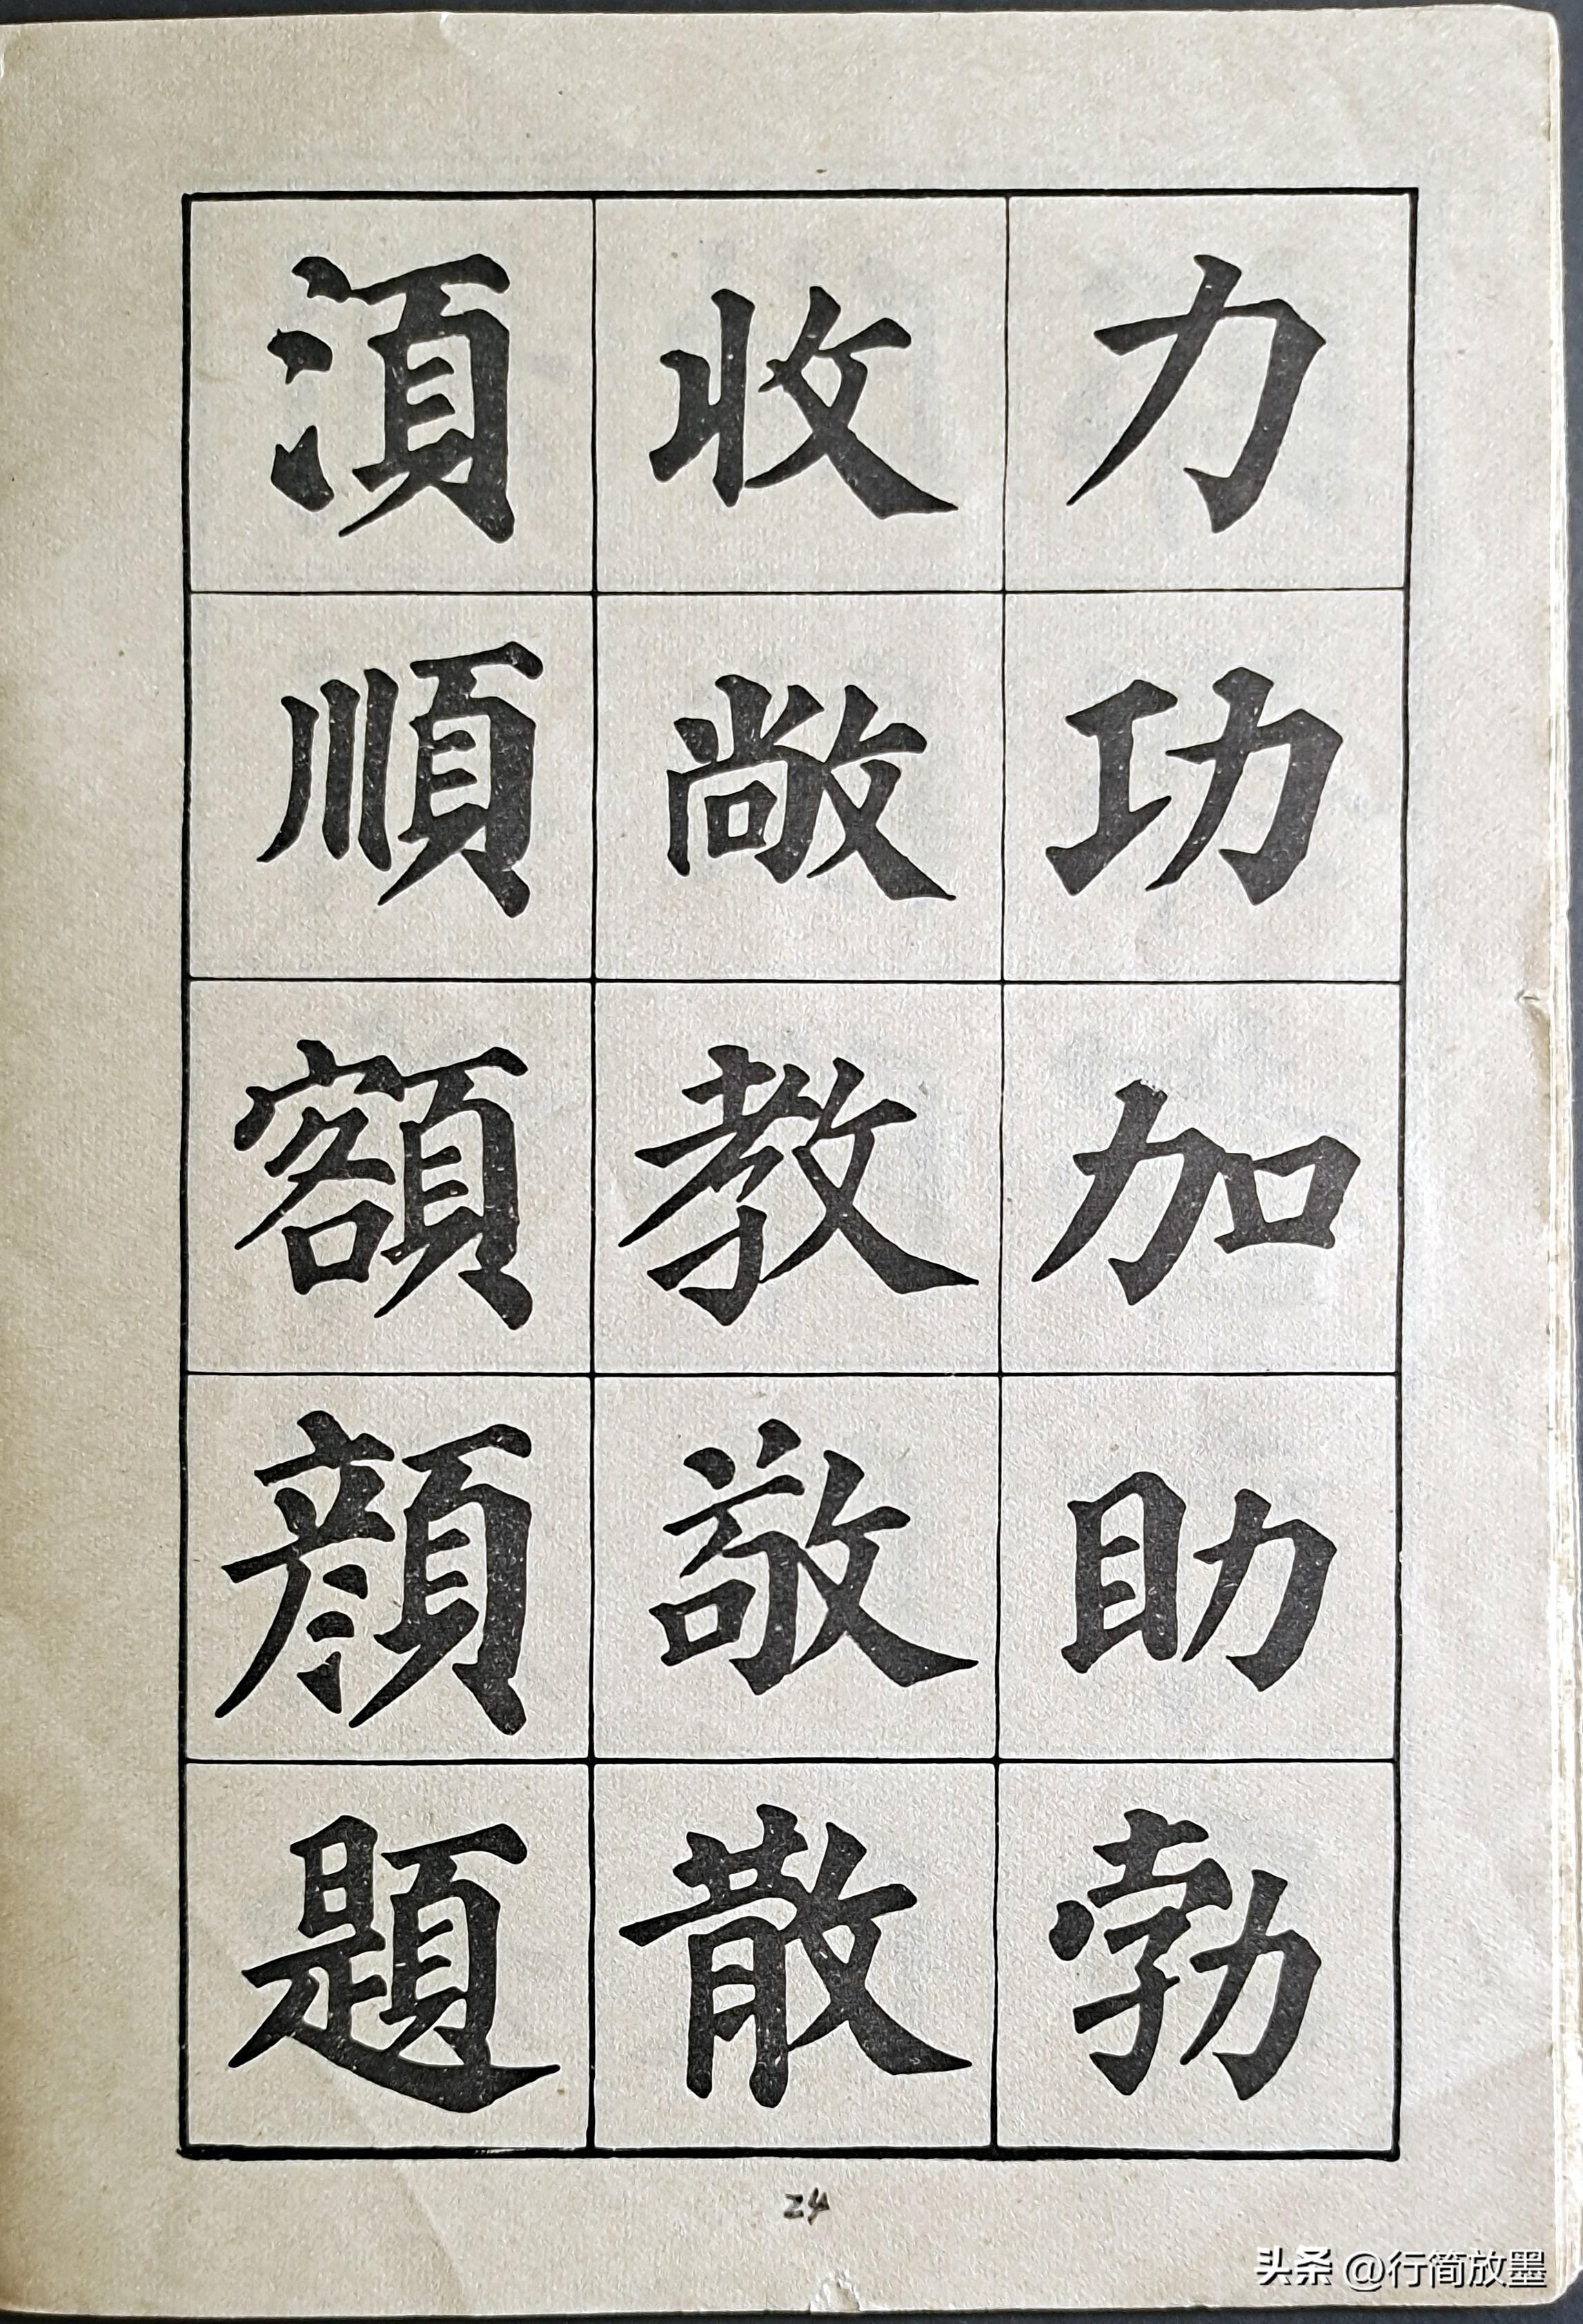 力功加助勃
收敞教敬散
湏順額顔題
24
头条 @行简放墨